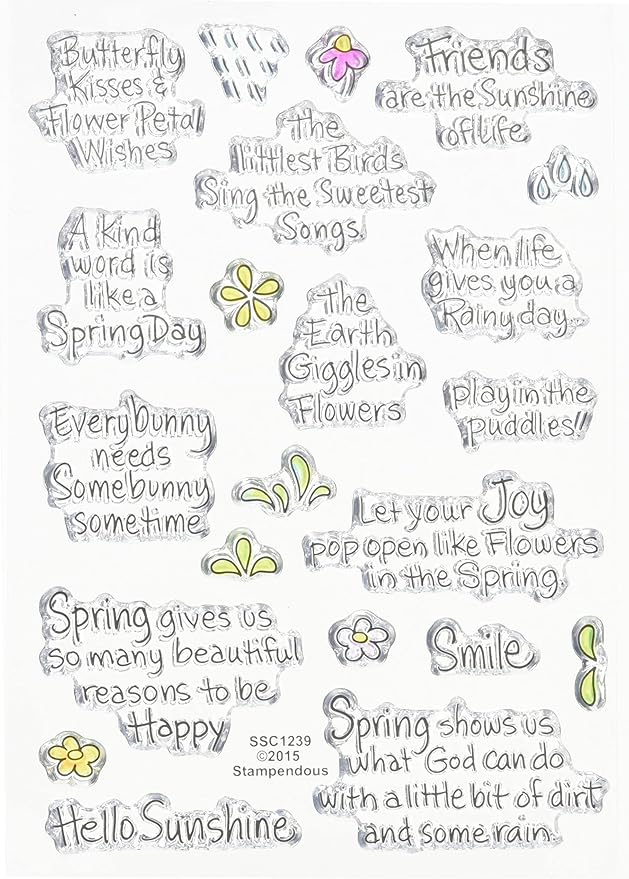 Butterfly
Kisses &
Flower Petal
Wishes
Friends
are the Sunshine
of life
The
littlest Birds
Sing the Sweetest
Songs.
A Kind
word is
like a
Spring Day
When life
gives you a
Rainy day...
the
Earth
Giggles in
Flowers
play in the
puddles!!
Everybunny
needs
Somebunny
sometime
Let your Joy
pop open like Flowers
in the Spring.
Spring gives us
so many beautiful
reasons to be
Happy
Smile
Spring shows us
what God can do
with a little bit of dirt
and some rain.
SSC1239
©2015
Stampendous
Hello Sunshine